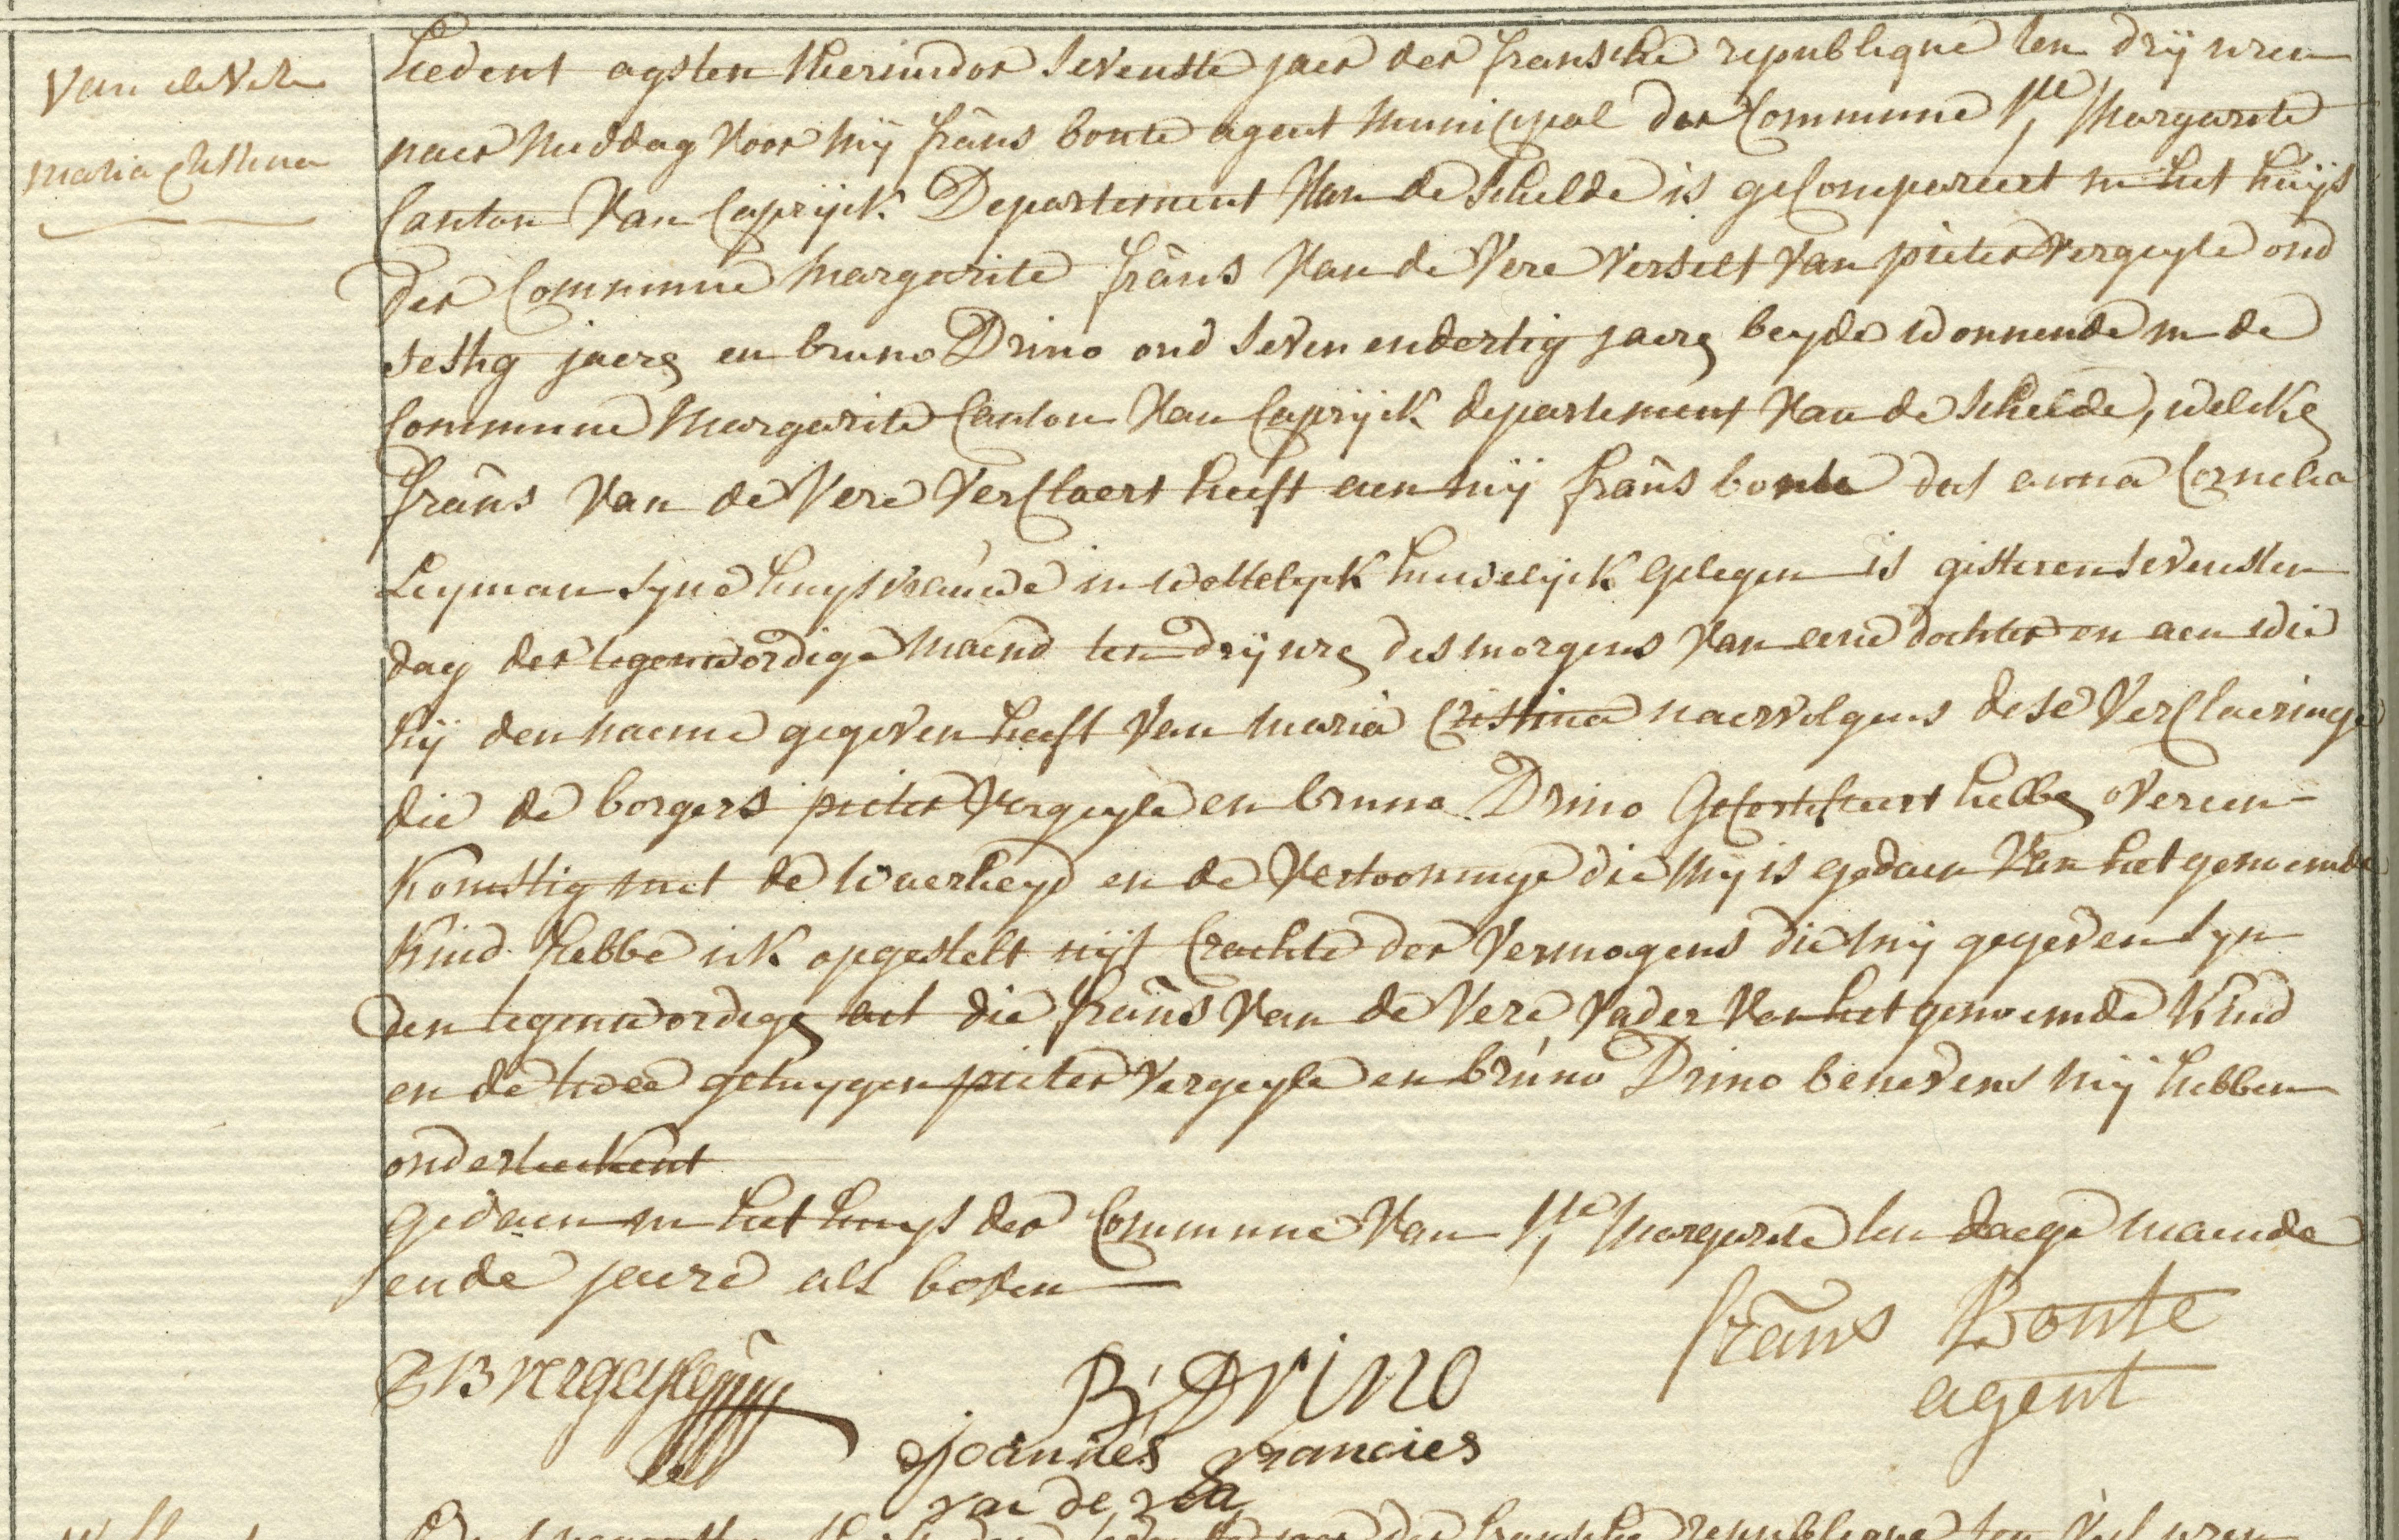 Van de Vere
maria Cristina
hedent agsten thermidor sevenste jaer der fransche republique ten drij uren
naer middag voor mij frans bonte agent municipal der Commune Ste Margarite
Canton van Caprijck Departement van de Schelde is geCompareert in het huijs
der Commune margarite frans van de Vere verselt van pieter vergeyle oud
sestig jaere en bruno Drino oud seven endertig jaere beyde wonnende in de
Commune Margarite Canton van Caprijck departement van de schelde, welcke
frans van de Vere verClaert heeft aen mij frans bonte dat anna Cornelia
Leyman syne huysvrauwe in wettelyck huwelijck gelegen is gisteren sevensten
dag der tegenwordige maend ten drij ure des morgens van eene dochter en aen wie
hij den naeme gegeven heeft van maria Cristina naervolgens dese verClaeringe
die de borgers pieter vergeyle en bruno Drino geCertificeert hebbe overeen-
komstig met de waerheyd en de vertooninge die mij is gedaen van het genoemde
kind hebbe ick opgestelt uijt Crachte der vermogens die mij gegeven syn
den tegenwordige act die frans van de Vere vader van het genoemde kind
en de twee getuygen pieter vergeyle en bruno Drino benevens mij hebben
onderteekent
gedaen in het huys der Commune van Ste Margarite ten daege maende
ende jaere als boven
frans Bonte
agent
P B vergeyle
B, Drino
joannes francies
van de vera